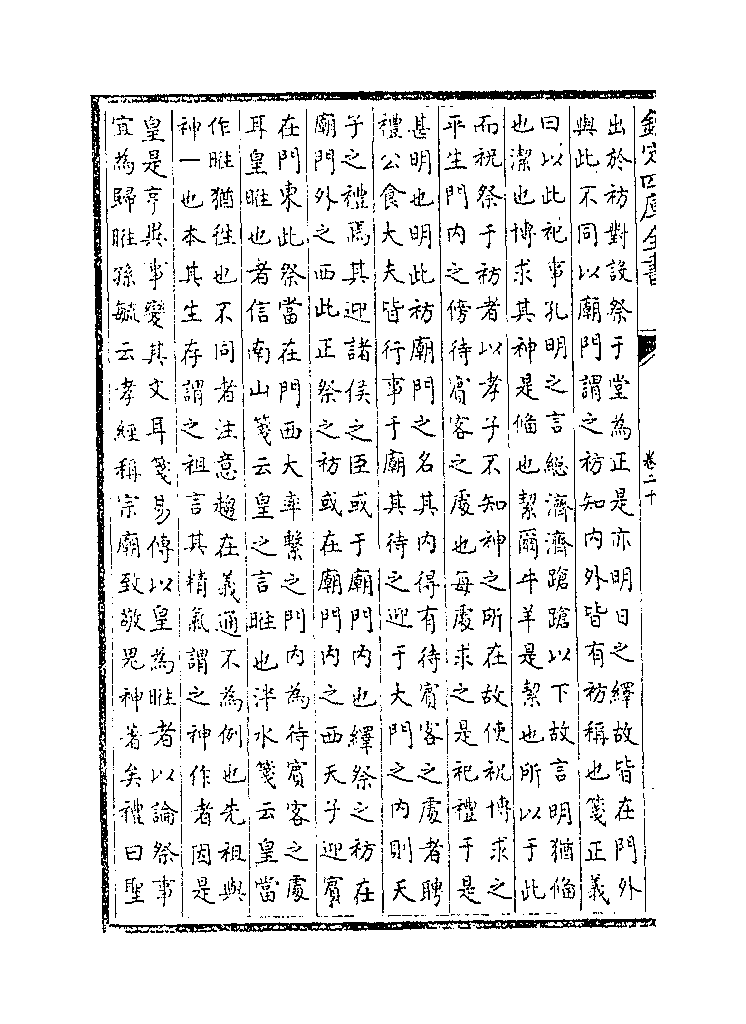 欽定四庫全書
卷二十
出於祊對設祭于堂為正是亦明日之繹故皆在門外
與此不同以廟門謂之祊知内外皆有祊稱也箋正義
曰以此祀事孔明之言總濟濟蹌蹌以下故言明猶備
也潔也博求其神是備也絜爾牛羊是絜也所以于此
而祝祭于祊者以孝子不知神之所在故使祝博求之
平生門内之傍待賓客之處也每處求之是祀禮于是
甚明也明此祊廟門之名其内得有待賓客之處者聘
禮公食大夫皆行事于廟其待之迎于大門之内則天
子之禮焉其迎諸侯之臣或于廟門内也繹祭之祊在
廟門外之西此正祭之祊或在廟門内之西天子迎賓
在門東此祭當在門西大率繫之門内為待賓客之處
耳皇暀也者信南山箋云皇之言暀也泮水箋云皇當
作暀猶往也不同者注意趨在義通不為例也先祖與
神一也本其生存謂之祖言其精氣謂之神作者因是
皇是亨與事變其文耳箋易傳以皇為暀者以論祭事
宜為歸暀孫毓云孝經稱宗廟致敬鬼神著矣禮曰聖